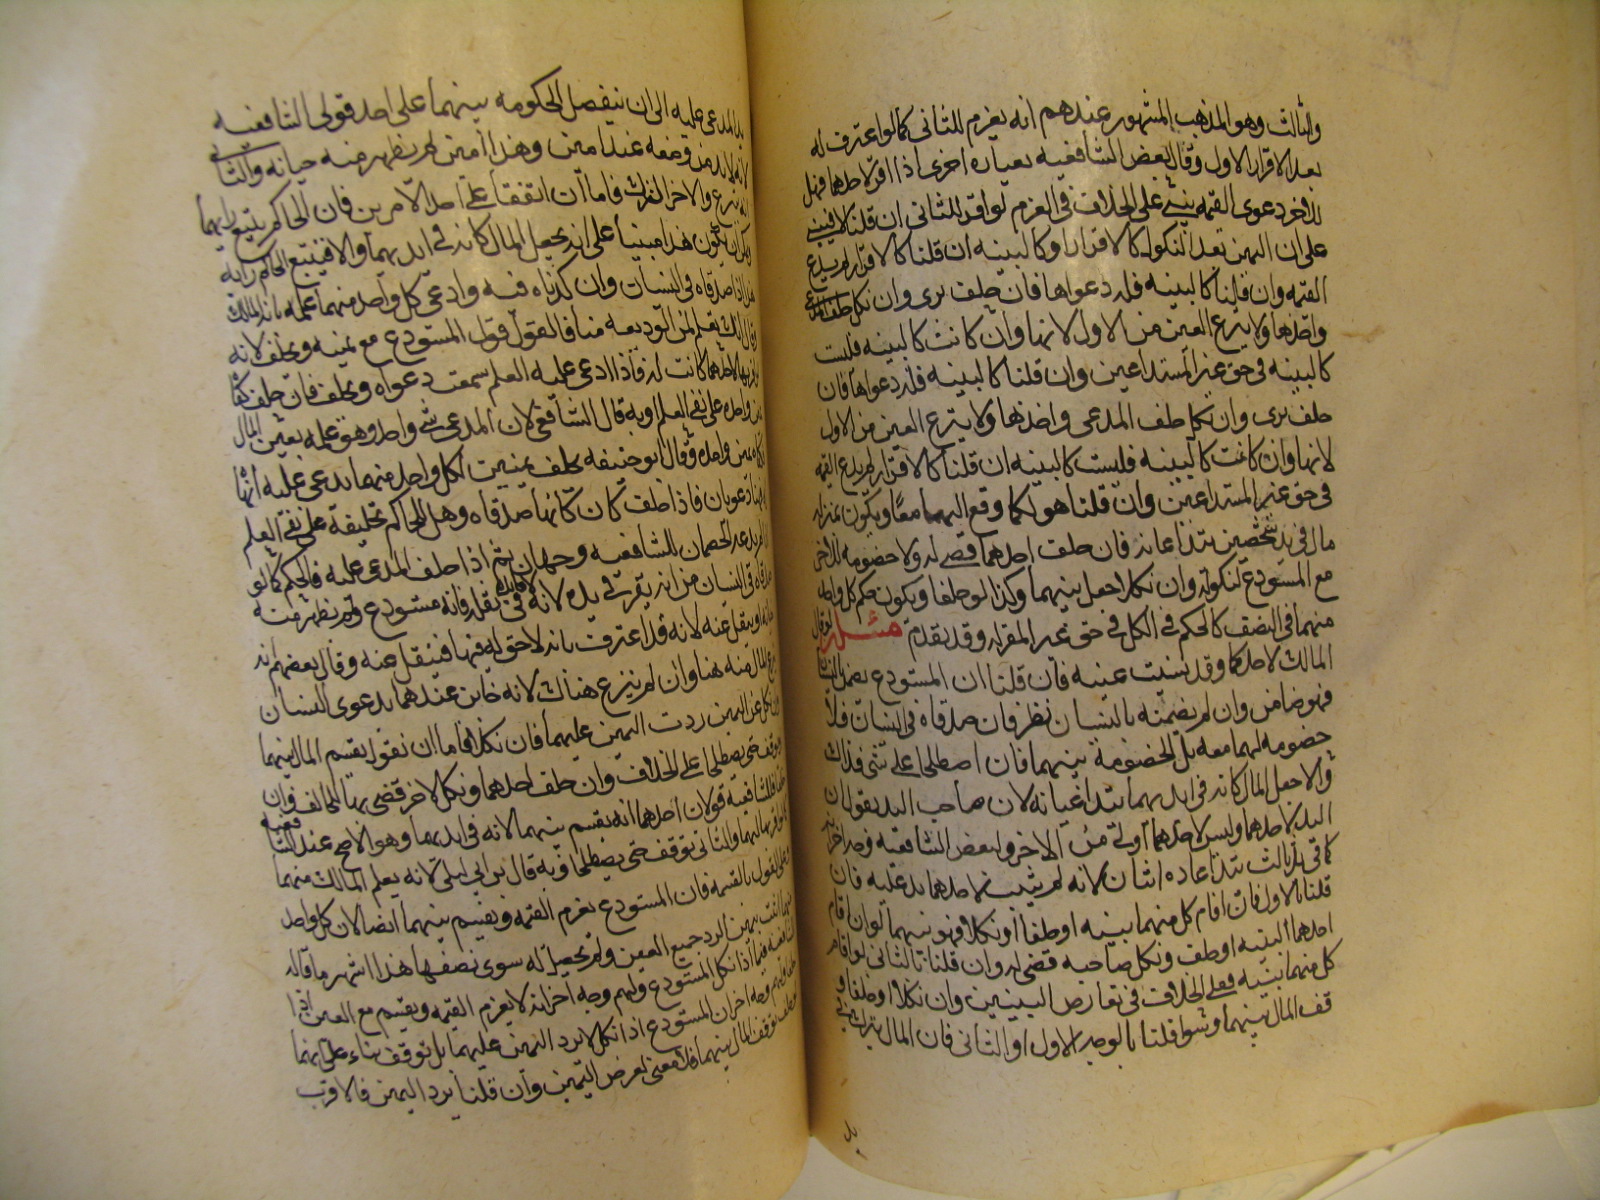 والثالث وهو المذهب المشهور عندهم انه يغرم للثاني كما لو اعترف له
بعد الاقرار الاول وقال بعض الشافعيه بعباره اخرى اذا اقر لاحدهما فهل
للاخر دعوى القيمه يبنى على الخلاف في الغرم لو اقر للثاني ان قلنا لا فيبنى
على ان اليمين بعد النكول كالاقرار او كالبينه ان قلنا كالاقرار لم يدع
القيمه وان قلنا كالبينه فله دعواها فان حلف برى وان نكل حلف المدعى
واخذها ولا ينزع العين من الاول لانها وان كانت كالبينه فليست
كالبينه في حق غير المتداعيين وان قلنا كالبينه فله دعواها فان
حلف برى وان نكل حلف المدعى واخذها ولا ينزع العين من الاول
لانها وان كانت كالبينه فليست كالبينه ان قلنا كالاقرار لم يدع القيمه
في حق غير المتداعيين وان قلنا هو لكما وقع اليهما معا ويكون بمنزله
مال في يد شخصين يتداعيانه فان حلف احدهما قضى له ولا خصومه للاخر
مع المستودع لنكوله وان نكلا جعل بينهما وكذا لو حلفا ويكون حكم كل واحد
منهما في النصف كالحكم في الكل في حق غير المقر له وقد تقدم مسئله لو قال
المالك لاحدكما وقد نسيت عينه فان قلنا ان المستودع يضمن بالنسيان
فهو ضامن وان لم يضمنه بالنسيان نظر فان صدقاه في النسيان فلا
خصومه لهما معه بل الخصومة بينهما فان اصطلحا على شى فذاك
والا جعل المال كانه في ايديهما يتداعيانه لان صاحب اليد يقول ان
اليد لاحدهما وليس احدهما اولى من الاخر ولبعض الشافعيه وجه اخر انه
كما في يد ثالث يتداعاه اثنان لانه لم يثبت لاحدهما يد عليه فان
قلنا بالاول فان اقام كل منهما بينه او حلفا او نكلا فهو بينهما ولو ان اقام
احدهما البينه او حلف ونكل صاحبه قضى له وان قلنا بالثاني لو اقام
كل منهما بينه فعلى الخلاف في تعارض البينتين وان نكلا او حلفا و
قف المال بينهما وسوا قلنا بالوجه الاول او الثاني فان المال يترك في
يد
يد المدعى عليه الى ان ينفصل الحكومه بينهما على احد قولي الشافعيه
لانه لابد من وضعه عند امين وهذا امين لم يظهر منه خيانه والثاني
انه ينزع والاخر الترك فاما ان اتفقا على احد الامرين فان الحاكم يتبع رايهما
ويمكن ان يكون هذا مبنيا على انه يجعل المال كانه في ايديهما والا فيتبع الحاكم رايه
هذا اذا صدقاه في النسيان وان كذباه فيه وادعى كل واحد منهما علمه بانه المالك
وقال انك تعلم لمن الوديعه منا فالقول قول المستودع مع يمينه ويحلف لانه
لو اقر بها لاحدهما كانت له فاذا ادعى عليه العلم سمعت دعواه ويحلف فان حلف كفاه
يمين واحده على نفي العلم وبه قال الشافعي لان المدعى شى واحد وهو علمه بعين المال
فكفاه يمين واحده وقال ابو حنيفه يحلف يمينين لكل واحد منهما يدعى عليه انها
دعويان فاذا حلف كان كانهما صدقاه وهل للحاكم تحليفه على نفي العلم
اذا لم يدعه الخصمان للشافعيه وجهان ثم اذا حلف المدعى عليه فالحكم كما لو
صدقاه في النسيان من انه يقر في يده لانه لا فايده في نقله فانه مستودع ولم يظهر منه
خيانه او ينقل عنه لانه قد اعترف بانه لا حق له فيها فينقل عنه وقال بعضهم انه
ينزع المال منه هنا وان لم ينزع هناك لانه خاين عندهما بدعوى النسيان
وان نكل عن اليمين ردت اليمين عليهما فان نكلا فاما ان نقول يقسم المال بينهما
او يوقف حتى يصطلحا على الخلاف وان حلف احدهما ونكل الاخر قضى بها للحالف وان
حلفا فللشافعيه قولان احدهما انه يقسم بينهما لانه في ايديهما وهو الاصح عند الشافعيه
كما لو اقر بها لهما والثاني توقف حتى يصطلحا وبه قال بن ابي ليلى لانه يعلم المالك منهما
وعلى القول بالقسمه فان المستودع يغرم القيمه ويقسم بينهما ايضا لان كل واحد
منهما اثبت بيمين الرد جميع العين ولم يحصل له سوى نصفها هذا اشهر ما قاله
الشافعيه فيما اذا نكل المستودع ولهم وجه اخر انه لا يغرم القيمه ويقسم مع العين اذا
حلفا ولهم وجه اخر ان المستودع اذا نكل لا ترد اليمين عليهما بل توقف بناء على انهما
لو حلفا توقف المال بينهما فلا معنى لعرض اليمين وان قلنا ترد اليمين فالاقرب